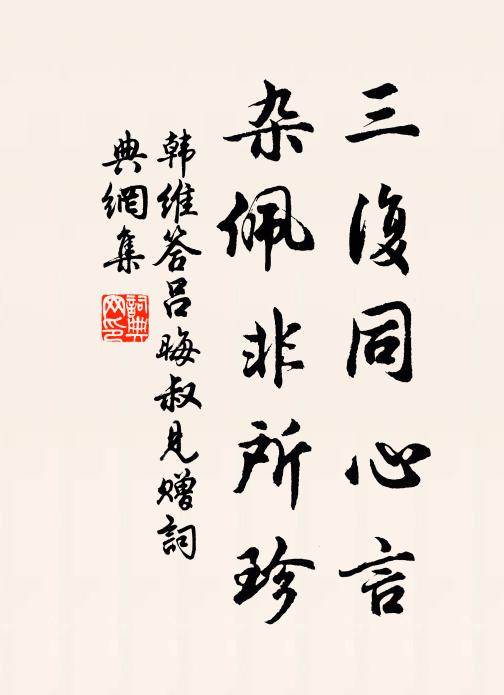 三復同心言
杂佩非所珍
韩维答吕晦叔见赠詞
典網集
詞典網印